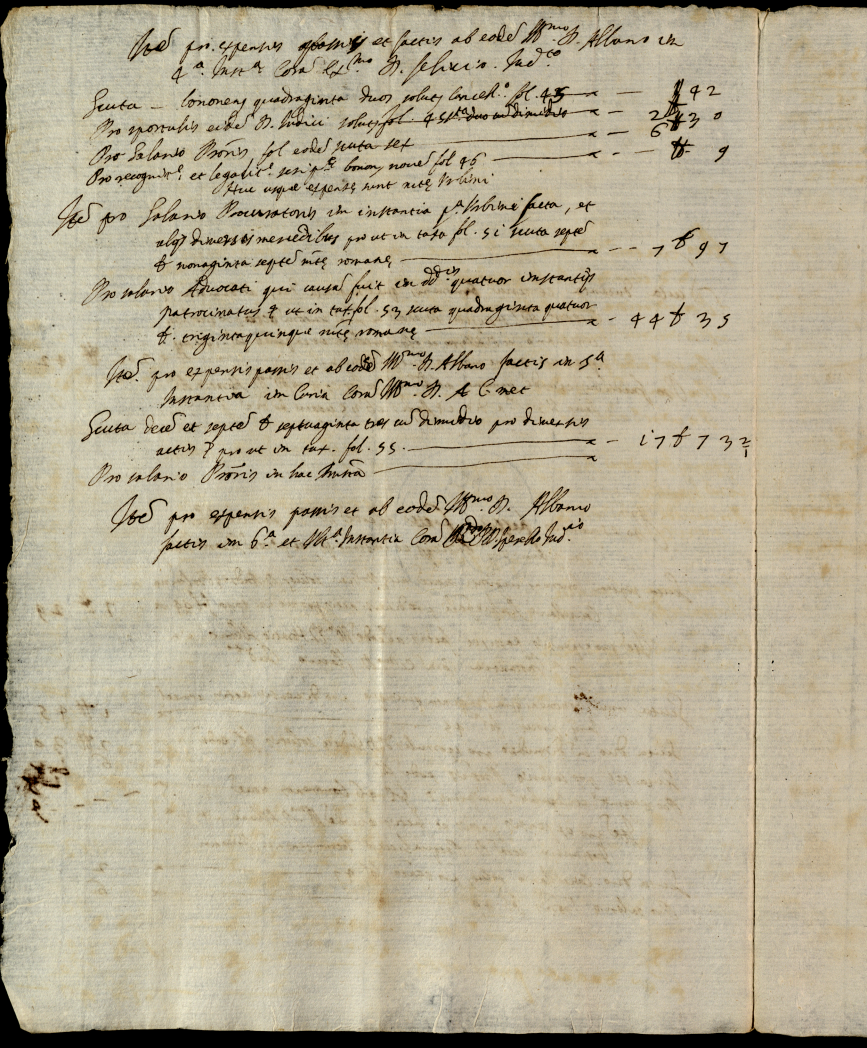 Ite pro expensis passis et factis ab eode Ill.mo D. Albano in
4.a Inst.a Cora Ex.mo D. felicio Iud.
Scuta — bononeas quadraginta duos solutos Cancell.o fol. 45 — 42
Pro sportulis eide D. Iudici solutis fol. 45 sc.ta duo cu dimidio — 2 30
Pro Salario Pro.ris fol eode scuta sex — 6
Pro recognit.e et legalit.e bonon. nove fol 46 — 9
Huc usque expense sunt Urbini
Ite pro Salario Procuratoris in instantia p.a Urbini facta, et
alys diversis mercedibus pro ut in taxa fol. 51 scuta septe
& nonaginta septe mte romane — 7 97
Pro salario Advocati qui causa fuit in d.dis quatuor instantys
patrocinatus ut in tax. fol. 53 scuta quadraginta quatuor
& trigintaquinque mte romane — 44 35
Ite pro expensis passis et ab eode Ill.mo D. Albano factis in 5.a
Instantia in Curia Cora Ill.mo D. A. C. met
Scuta dece et septe & septuaginta tres cu dimidio pro diversis
actis pro ut in tax. fol. 55. — 17 73 1/2
Pro salario Pro.ris in hac Insta
Ite pro expensis passis et ab eode Ill.mo D. Albano
factis in 6.a et Ult.a Instantia Cora